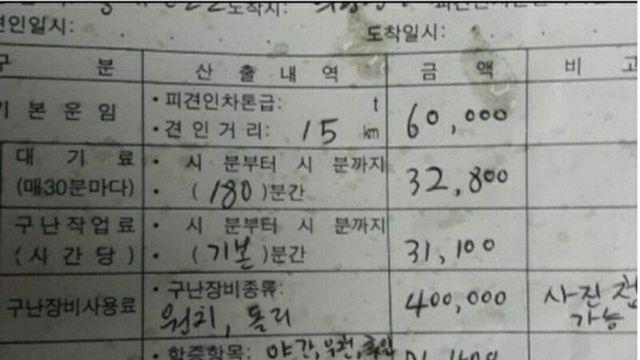 도착지:
견인일시: 도착일시:
구 분 산 출 내 역 금 액 비 고
기본운임 • 피견인차톤급: t 60,000
• 견 인 거 리: 15 km
대 기 료 • 시 분부터 시 분까지 32,800
(매30분마다) • (180)분간
구난작업료 • 시 분부터 시 분까지 31,100
(시 간 당) • (기본)분간
구난장비사용료 • 구난장비종류: 400,000 사진 첨
윈치, 돌리 가능
• 할증항목: 야간,우천,